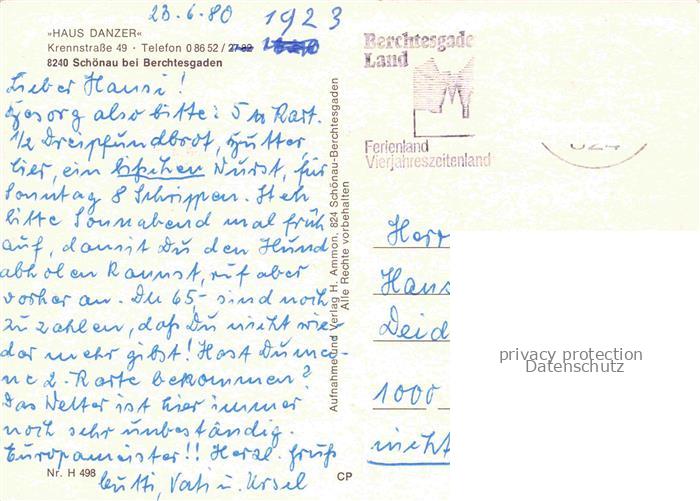 23.6.80 1923
»HAUS DANZER«
Krennstraße 49 · Telefon 0 86 52 / 27 82
8240 Schönau bei Berchtesgaden
Lieber Hansi!
besorg also bitte: 5 Kart.
1/2 Dreipfundbrot, Butter,
Eier, ein bißchen Wurst, für
Sonntag 8 Schrippen. Steh
bitte Sonnabend mal früh
auf, damit Du den Hund
abholen kannst, ruf aber
vorher an. Die 65,- sind noch
zu zahlen, daß Du nicht wie-
der mehr gibst! Hast Du mei-
ne 2. Karte bekommen?
Das Wetter ist hier immer
noch sehr unbeständig.
Europameister!! Herzl. Gruß
Mutti, Vati u. Ursel
Nr. H 498
CP
Aufnahme und Verlag H. Ammon, 824 Schönau-Berchtesgaden
Alle Rechte vorbehalten
Berchtesgade
Land
Ferienland
Vierjahreszeitenland
824
Herr
Hans
Deid
1000
nicht
privacy protection
Datenschutz